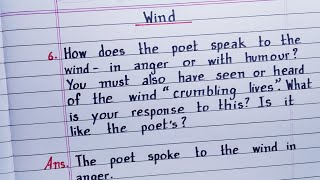 Wind
6. How does the poet speak to the
wind - in anger or with humour?
You must also have seen or heard
of the wind "crumbling lives". What
is your response to this? Is it
like the poet's?
Ans. The poet spoke to the wind in
anger.